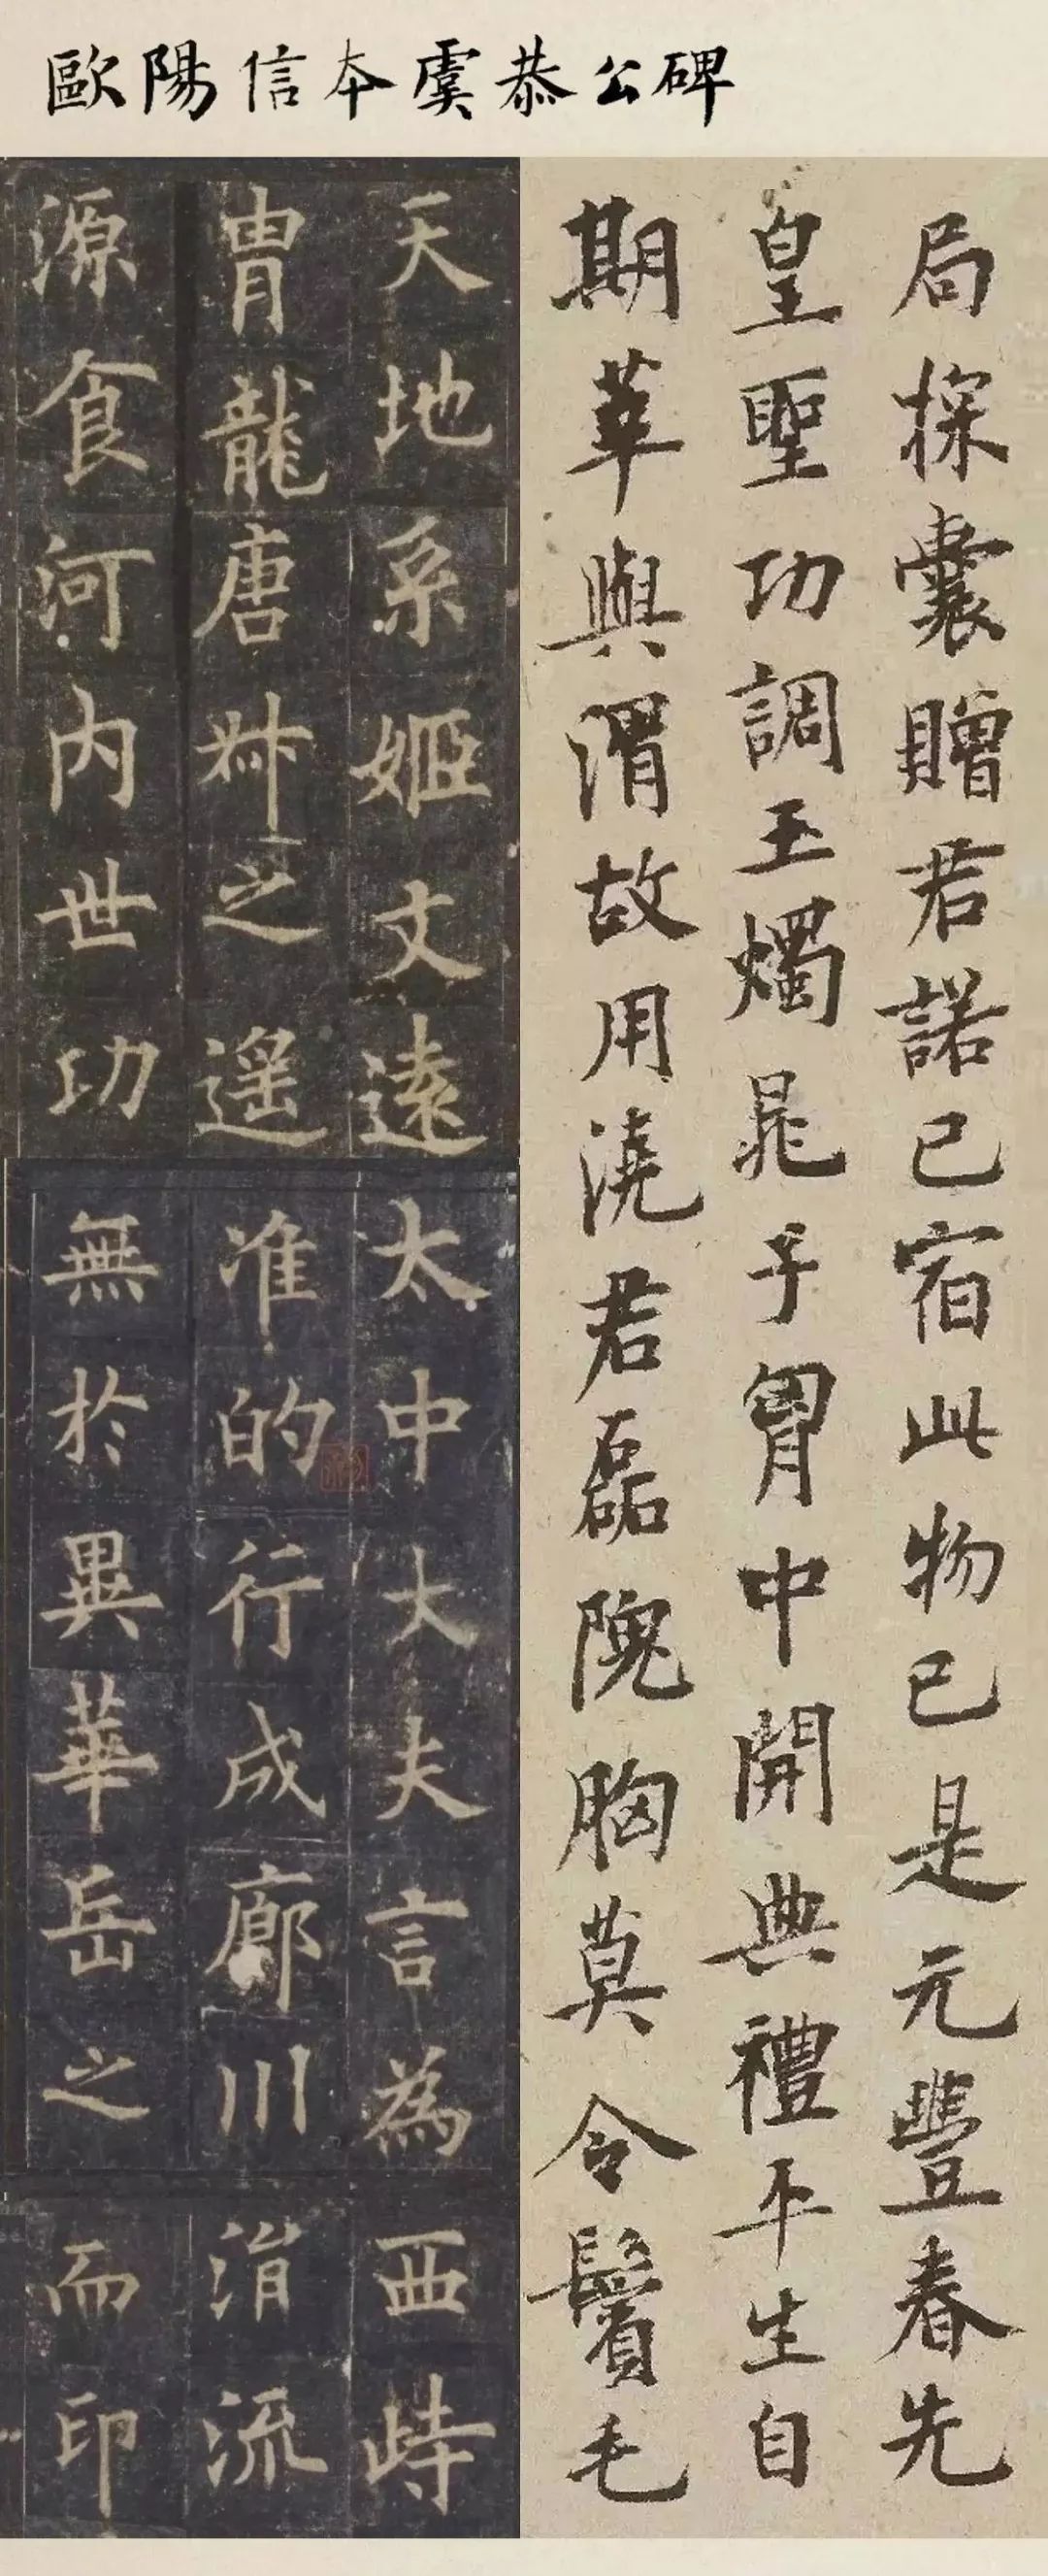 歐陽信本虞恭公碑
局探囊贈君諾已宿此物已是元豐春先
皇聖功調玉燭晁子胷中開典禮平生自
期莘與渭故用澆君磊隗胸莫令鬢毛
天地系姬文遠太中大夫言為西峙
胄龍唐叔之遥准的行成廊川涓流
源食河内世功無於異華岳之而印